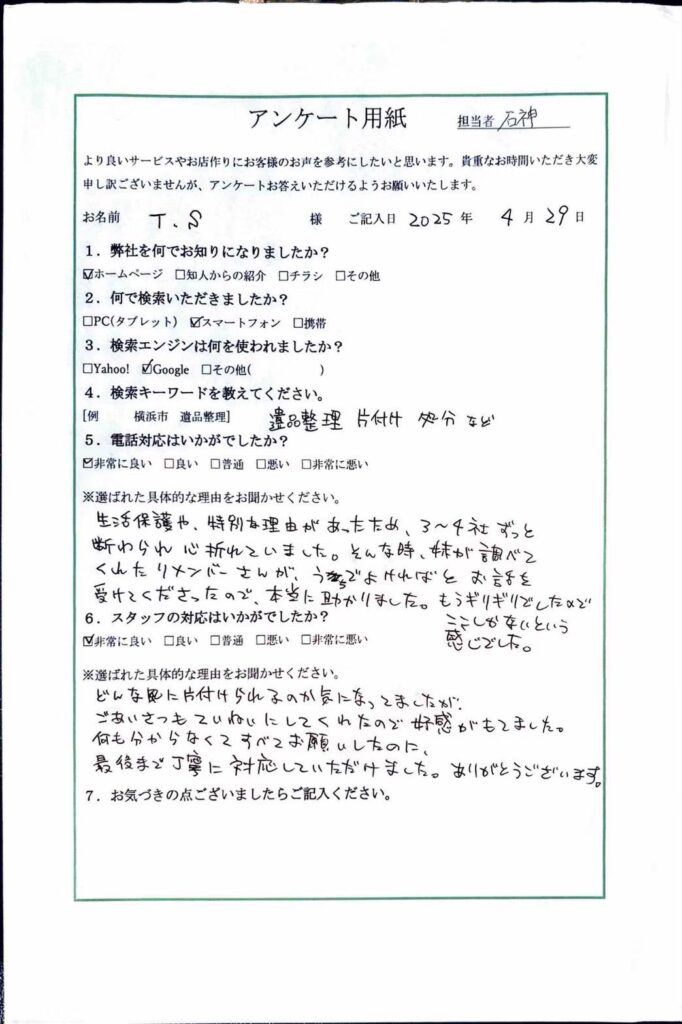 アンケート用紙 担当者 石神
より良いサービスやお店作りにお客様のお声を参考にしたいと思います。貴重なお時間いただき大変
申し訳ございませんが、アンケートお答えいただけるようお願いいたします。
お名前 T.S 様 ご記入日 2025 年 4 月 29 日
1．弊社を何でお知りになりましたか？
☑ホームページ □知人からの紹介 □チラシ □その他
2．何で検索いただきましたか？
□PC(タブレット) ☑スマートフォン □携帯
3．検索エンジンは何を使われましたか？
□Yahoo! ☑Google □その他( )
4．検索キーワードを教えてください。
[例 横浜市 遺品整理] 遺品整理 片付け 処分 など
5．電話対応はいかがでしたか？
☑非常に良い □良い □普通 □悪い □非常に悪い
※選ばれた具体的な理由をお聞かせください。
生活保護や、特別な理由があったため、3〜4社ずっと
断わられ心折れていました。そんな時、妹が調べて
くれたリメンバーさんが、うちでよければとお話を
受けてくださったので、本当に助かりました。もうギリギリでしたので
ここしかないという
感じでした。
6．スタッフの対応はいかがでしたか？
☑非常に良い □良い □普通 □悪い □非常に悪い
※選ばれた具体的な理由をお聞かせください。
どんな風に片付けられるのか気になってましたが、
ごあいさつもていねいにしてくれたので好感がもてました。
何も分からなくてすべてお願いしたのに、
最後まで丁寧に対応していただけました。ありがとうございます。
7．お気づきの点ございましたらご記入ください。